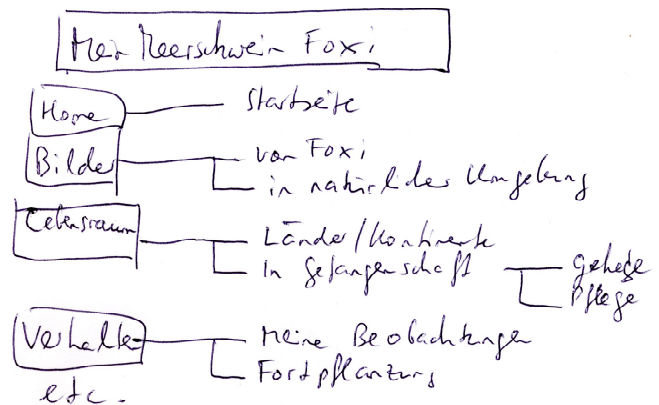 Mein Meerschwein Foxi
Home
Startseite
Bilder
von Foxi
in natürlicher Umgebung
Lebensraum
Länder/Kontinente
In Gefangenschaft
Gehege
Pflege
Verhalten
Meine Beobachtungen
Fortpflanzung
etc.